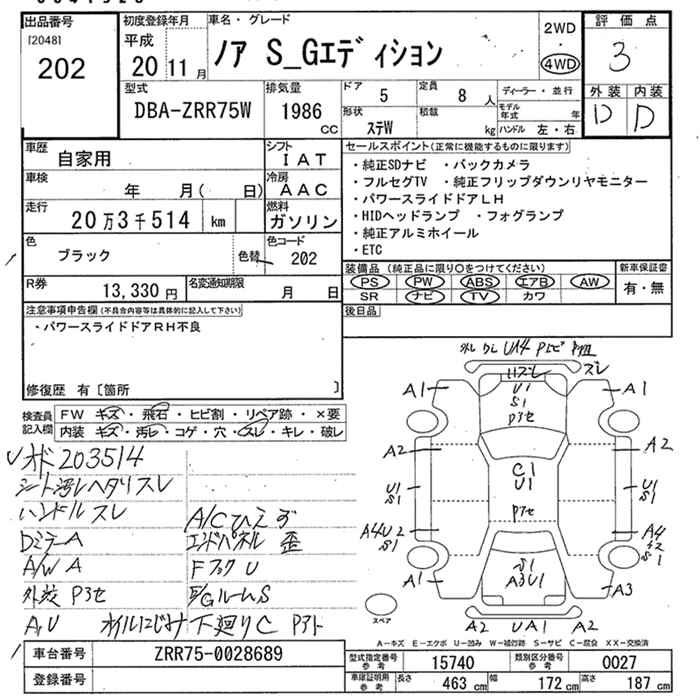 出品番号 初度登録年月 車名・グレード 2WD 評価点
[2048] 平成 ノア S_Gエディション ・ 3
202 20 11月 4WD
型式 排気量 ドア 5 定員 8人 ディーラー・並行 外装 内装
DBA-ZRR75W 1986 cc 形状 ステW 積載 kg モデル年式 年 D D
ハンドル 左・右
車歴 自家用 シフト IAT セールスポイント(正常に機能するものに限ります)
車検 年 月( 日) 冷房 AAC ・純正SDナビ ・バックカメラ
・フルセグTV ・純正フリップダウンリヤモニター
走行 20万3千514 km 燃料 ガソリン ・パワースライドドアLH
・HIDヘッドランプ ・フォグランプ
色 ブラック 色替 色コード 202 ・純正アルミホイール
・ETC
R券 13,330円 名変通知期限 月 日 装備品(純正品に限り○をつけてください) 新車保証書
PS PW ABS エアB AW 有・無
SR ナビ TV カワ
注意事項申告欄(不具合内容等は具体的に記入して下さい) 後日品
・パワースライドドアRH不良
修復歴 有[箇所 ]
検査員記入欄 FW キズ・飛石・ヒビ割・リペア跡・×要
内装 キズ・汚レ・コゲ・穴・スレ・キレ・破レ
203514
シート汚レヘタリスレ
ハンドルスレ A/Cひえず
DミラーA エンドパネル 歪
A/W A FフックU
P3セ ルームS
A,U オイルにじみ 下廻りC
U14
ズレ ズレ
A1 U1 A1
S1
P3セ
A2 C1 A2
U1 U1 U1
S1 S1
P7セ
A4U2 A4
S1 S1
A1 S1 A3
A3U1
スペア A2 UA1 A2
A-キズ E-エクボ U-凹み W-補修跡 S-サビ C-腐食 XX-交換済
車台番号 ZRR75-0028689 型式指定番号参考 15740 類別区分番号参考 0027
登録番号 車庫証明用参考 長さ 463 cm 幅 172 cm 高さ 187 cm